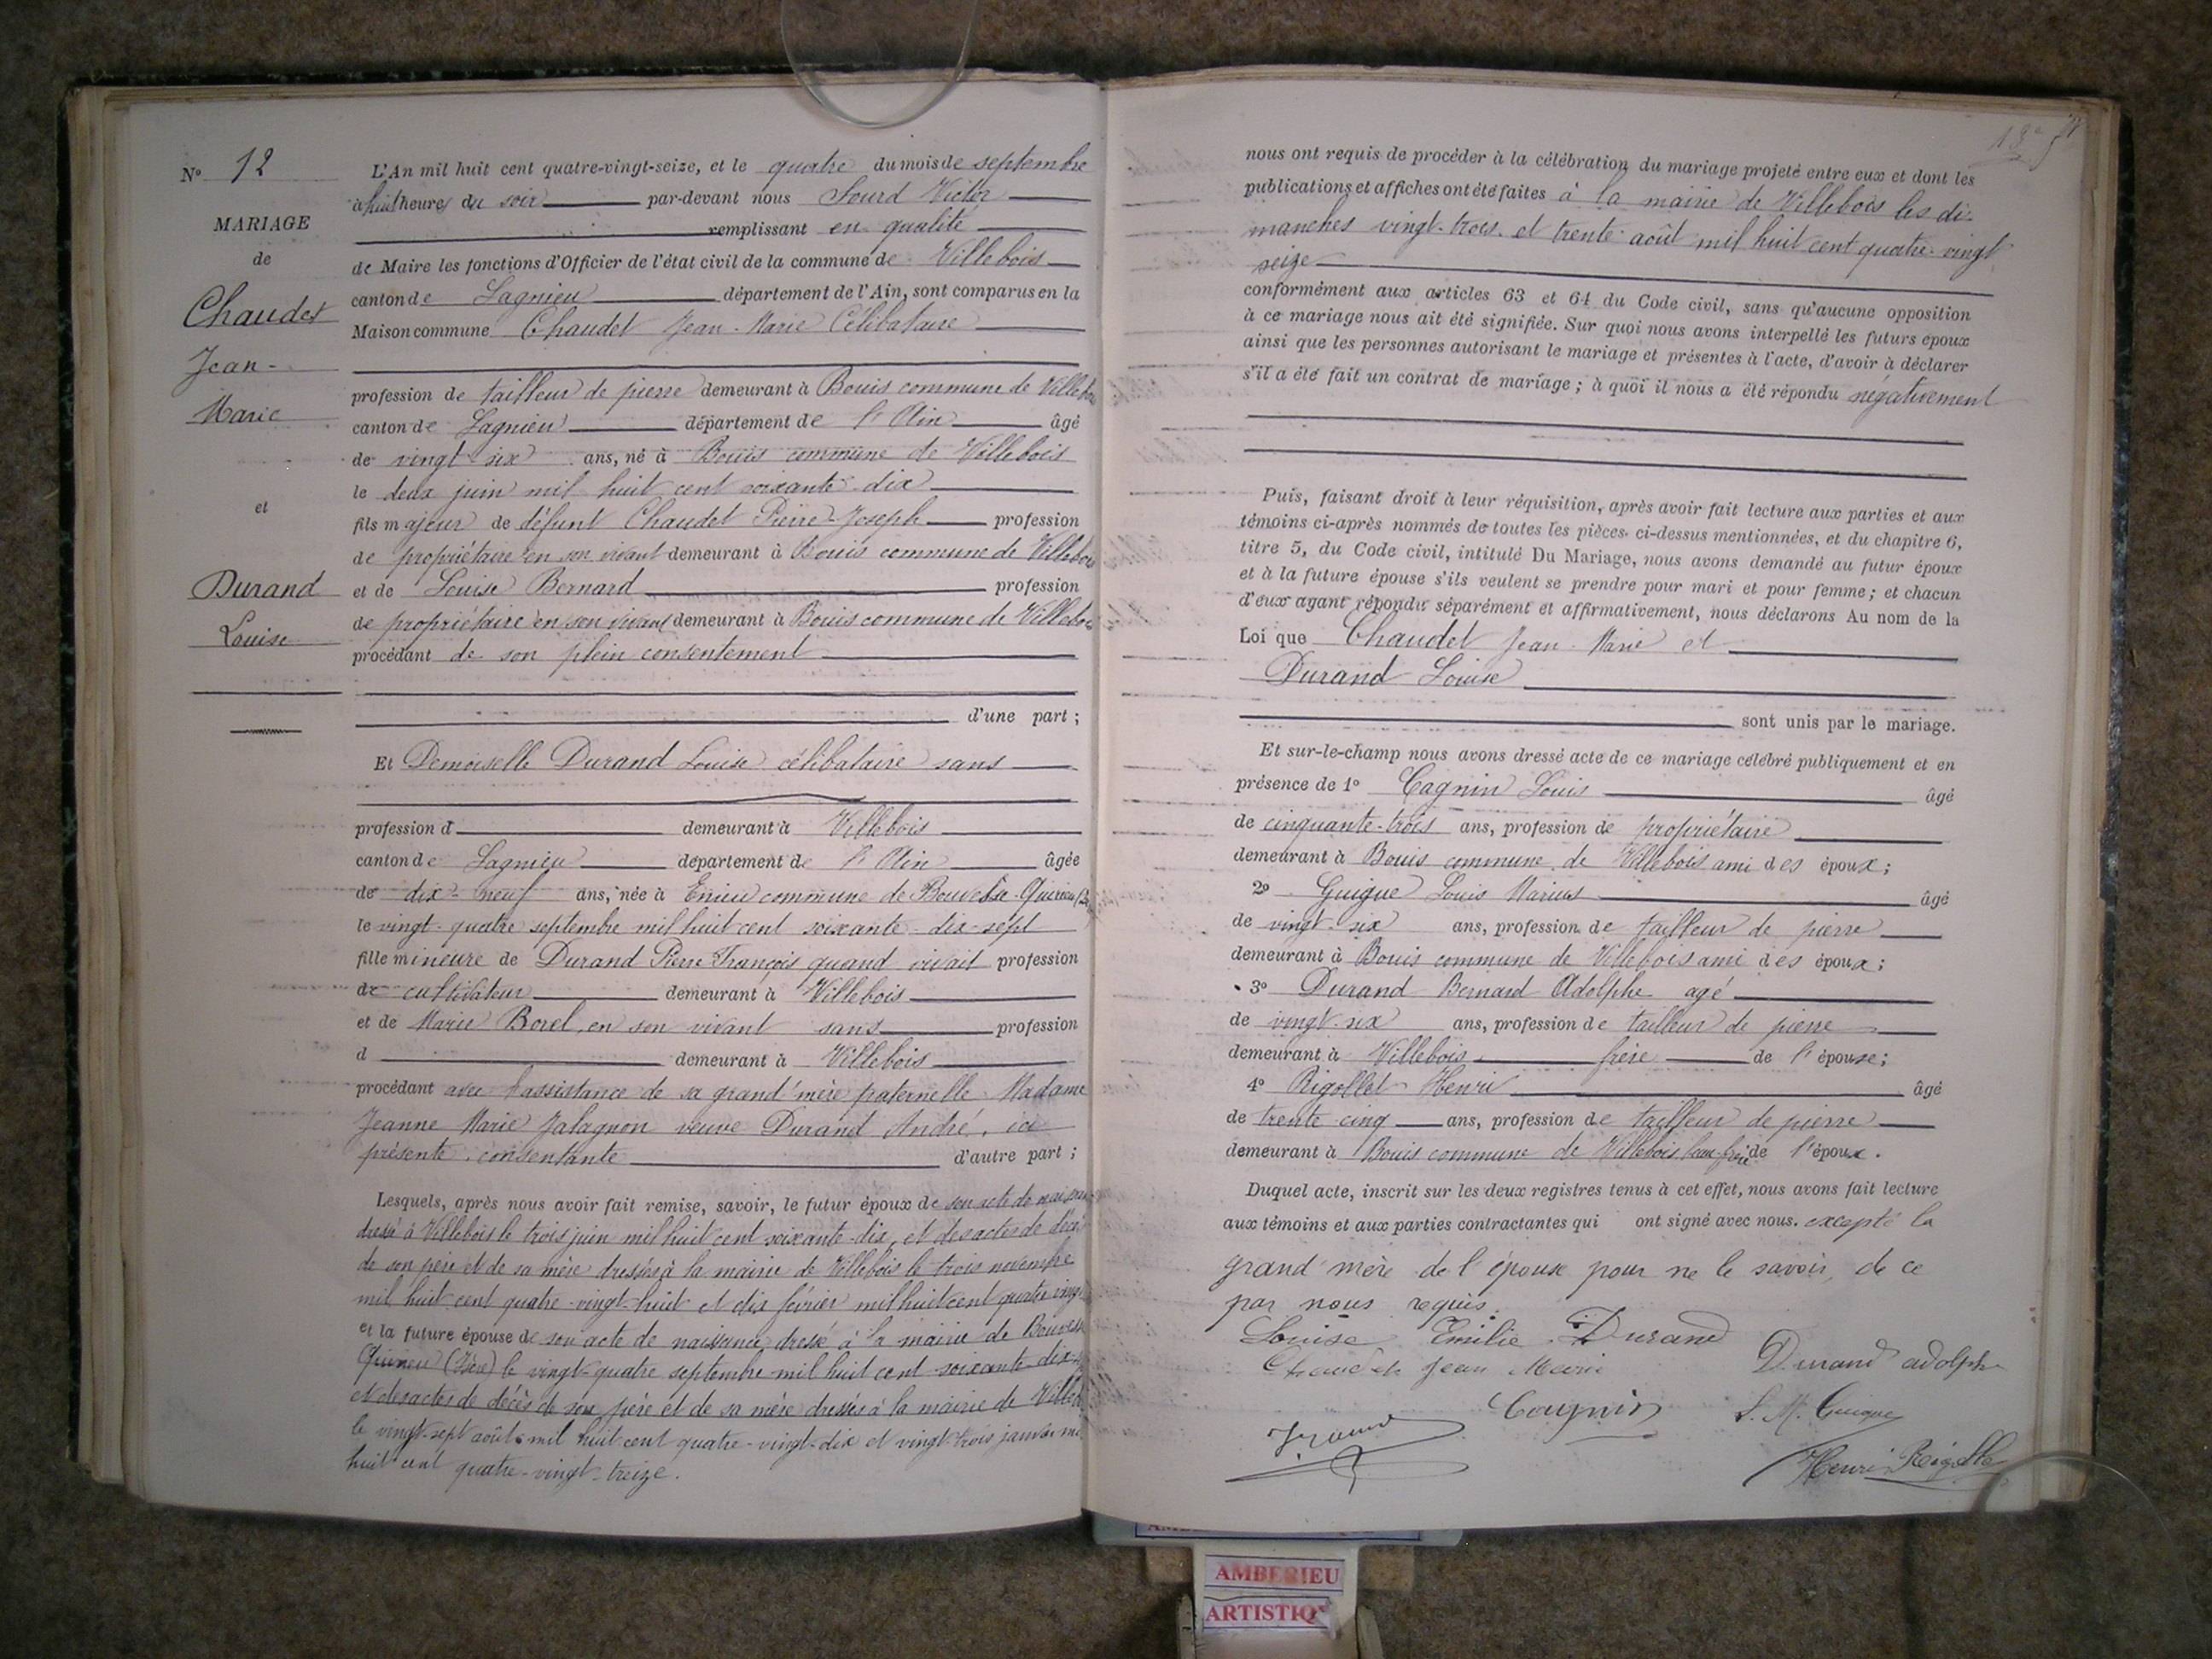 N° 12
MARIAGE
de
Chaudet
Jean-
Marie
et
Durand
Louise
L'An mil huit cent quatre-vingt-seize, et le quatre du mois de septembre
à huit heures du soir par-devant nous Sourd Victor
remplissant en qualité
de Maire les fonctions d'Officier de l'état civil de la commune de Villebois
canton de Lagnieu département de l'Ain, sont comparus en la
Maison commune Chaudet Jean-Marie Célibataire
profession de tailleur de pierre demeurant à Bouis commune de Villebois
canton de Lagnieu département de l'Ain âgé
de vingt-six ans, né à Bouis commune de Villebois
le deux juin mil huit cent soixante-dix
fils majeur de défunt Chaudet Pierre-Joseph profession
de propriétaire en son vivant demeurant à Bouis commune de Villebois
et de Louise Bernard profession
de propriétaire en son vivant demeurant à Bouis commune de Villebois
procédant de son plein consentement
d'une part ;
Et Demoiselle Durand Louise célibataire sans
profession d demeurant à Villebois
canton de Lagnieu département de l'Ain âgée
de dix-neuf ans, née à Enieu commune de Bouvesse-Quirieu
le vingt-quatre septembre mil huit cent soixante-dix-sept
fille mineure de Durand Pierre François quand vivait profession
de cultivateur demeurant à Villebois
et de Marie Borel, en son vivant sans profession
d demeurant à Villebois
procédant avec l'assistance de sa grand'mère paternelle Madame
Jeanne Marie Jalagnon veuve Durand André, ici
présente, consentante d'autre part ;
Lesquels, après nous avoir fait remise, savoir, le futur époux de son acte de naissance
dressé à Villebois le trois juin mil huit cent soixante-dix, et des actes de décès
de son père et de sa mère dressés à la mairie de Villebois le trois novembre
mil huit cent quatre-vingt-huit et dix février mil huit cent quatre vingt
et la future épouse de son acte de naissance dressé à la mairie de Bouvesse
Quirieu (Isère) le vingt-quatre septembre mil huit cent soixante-dix-
et des actes de décès de son père et de sa mère dressés à la mairie de Villebois
le vingt-sept août mil huit cent quatre-vingt-dix et vingt-trois janvier mil
huit cent quatre-vingt-treize.
nous ont requis de procéder à la célébration du mariage projeté entre eux et dont les
publications et affiches ont été faites à la mairie de Villebois les di-
manches vingt-trois et trente août mil huit cent quatre-vingt
seize
conformément aux articles 63 et 64 du Code civil, sans qu'aucune opposition
à ce mariage nous ait été signifiée. Sur quoi nous avons interpellé les futurs époux
ainsi que les personnes autorisant le mariage et présentes à l'acte, d'avoir à déclarer
s'il a été fait un contrat de mariage ; à quoi il nous a été répondu négativement
Puis, faisant droit à leur réquisition, après avoir fait lecture aux parties et aux
témoins ci-après nommés de toutes les pièces ci-dessus mentionnées, et du chapitre 6,
titre 5, du Code civil, intitulé Du Mariage, nous avons demandé au futur époux
et à la future épouse s'ils veulent se prendre pour mari et pour femme ; et chacun
d'eux ayant répondu séparément et affirmativement, nous déclarons Au nom de la
Loi que Chaudet Jean-Marie et
Durand Louise
sont unis par le mariage.
Et sur-le-champ nous avons dressé acte de ce mariage célébré publiquement et en
présence de 1° Cagnin Louis âgé
de cinquante-trois ans, profession de propriétaire
demeurant à Bouis commune de Villebois ami des époux ;
2° Guigue Louis Marius âgé
de vingt-six ans, profession de tailleur de pierre
demeurant à Bouis commune de Villebois ami des époux ;
3° Durand Bernard Adolphe agé
de vingt-six ans, profession de tailleur de pierre
demeurant à Villebois frère de l'épouse ;
4° Rigollet Henri âgé
de trente cinq ans, profession de tailleur de pierre
demeurant à Bouis commune de Villebois beau-frère de l'époux.
Duquel acte, inscrit sur les deux registres tenus à cet effet, nous avons fait lecture
aux témoins et aux parties contractantes qui ont signé avec nous. excepté la
grand'mère de l'épouse pour ne le savoir, de ce
par nous requis.
Louise Emilie Durand
Chaudet Jean Marie Durand adolphe
Cagnin L. M. Guigue
Henri Rigollet
AMBERIEU
ARTISTIQ